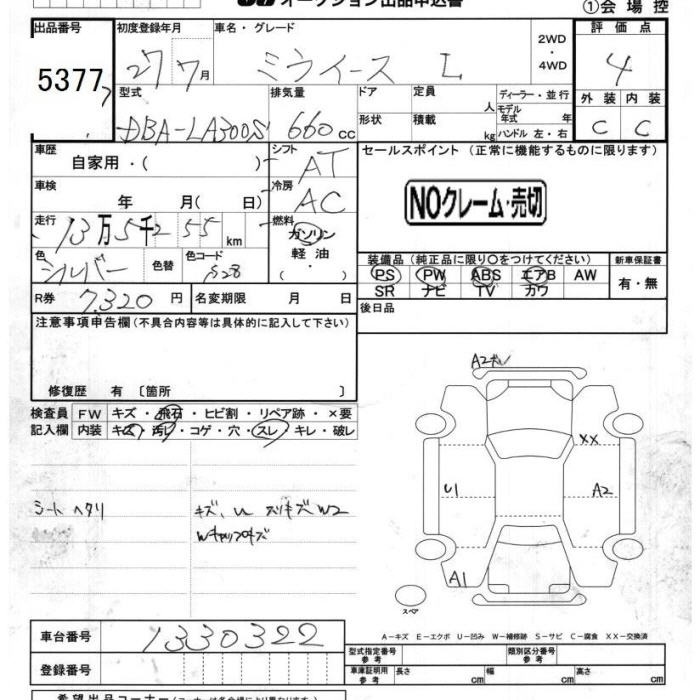 オークション出品申込書
①会場控
出品番号 初度登録年月 車名・グレード 評価点
5377 27 7月 ミライース L 2WD・4WD 4
型式 排気量 ドア 定員 人 ディーラー・並行 外装 内装
DBA-LA300S 660cc 形状 積載 kg モデル年式 年 ハンドル 左・右 C C
車歴 シフト セールスポイント (正常に機能するものに限ります)
自家用・( ) AT
車検 冷房
年 月( 日) AC NOクレーム・売切
走行 燃料
13万5千255km ガソリン
軽油
( ・ )
色 色替 色コード 装備品 (純正品に限り○をつけてください) 新車保証書
シルバー S28 PS PW ABS エアB AW 有・無
SR ナビ TV カワ
R券 7,320円 名変期限 月 日 後日品
注意事項申告欄 (不具合内容等は具体的に記入して下さい)
修復歴 有 〔箇所 〕
検査員 FW キズ・飛石・ヒビ割・リペア跡・×要
記入欄 内装 キズ・汚レ・コゲ・穴・スレ・キレ・破レ
A2
XX
U1 A2
シート ヘタリ
A1
スペア
A-キズ E-エクボ U-凹み W-補修跡 S-サビ C-腐食 XX-交換済
車台番号 1330322 型式指定番号 参考 類別区分番号 参考
登録番号 車庫証明用 参考 長さ cm 幅 cm 高さ cm
希望出品コーナー